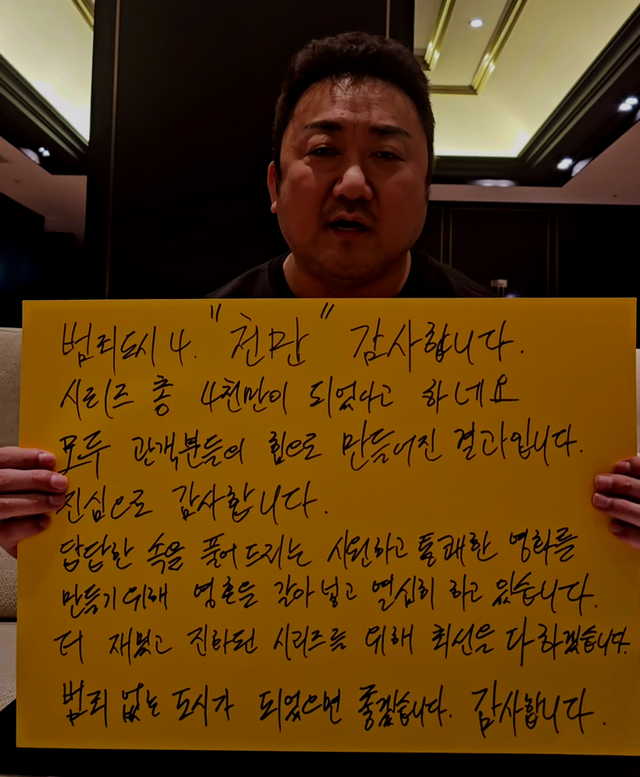 범죄도시 4. "천만" 감사합니다.
시리즈 총 4천만이 되었다고 하네요
모두 관객분들의 힘으로 만들어진 결과입니다.
진심으로 감사합니다.
답답한 속을 풀어드리는 시원하고 통쾌한 영화를
만들기 위해 영혼을 갈아 넣고 열심히 하고 있습니다.
더 재밌고 진화된 시리즈를 위해 최선을 다하겠습니다.
범죄 없는 도시가 되었으면 좋겠습니다. 감사합니다.